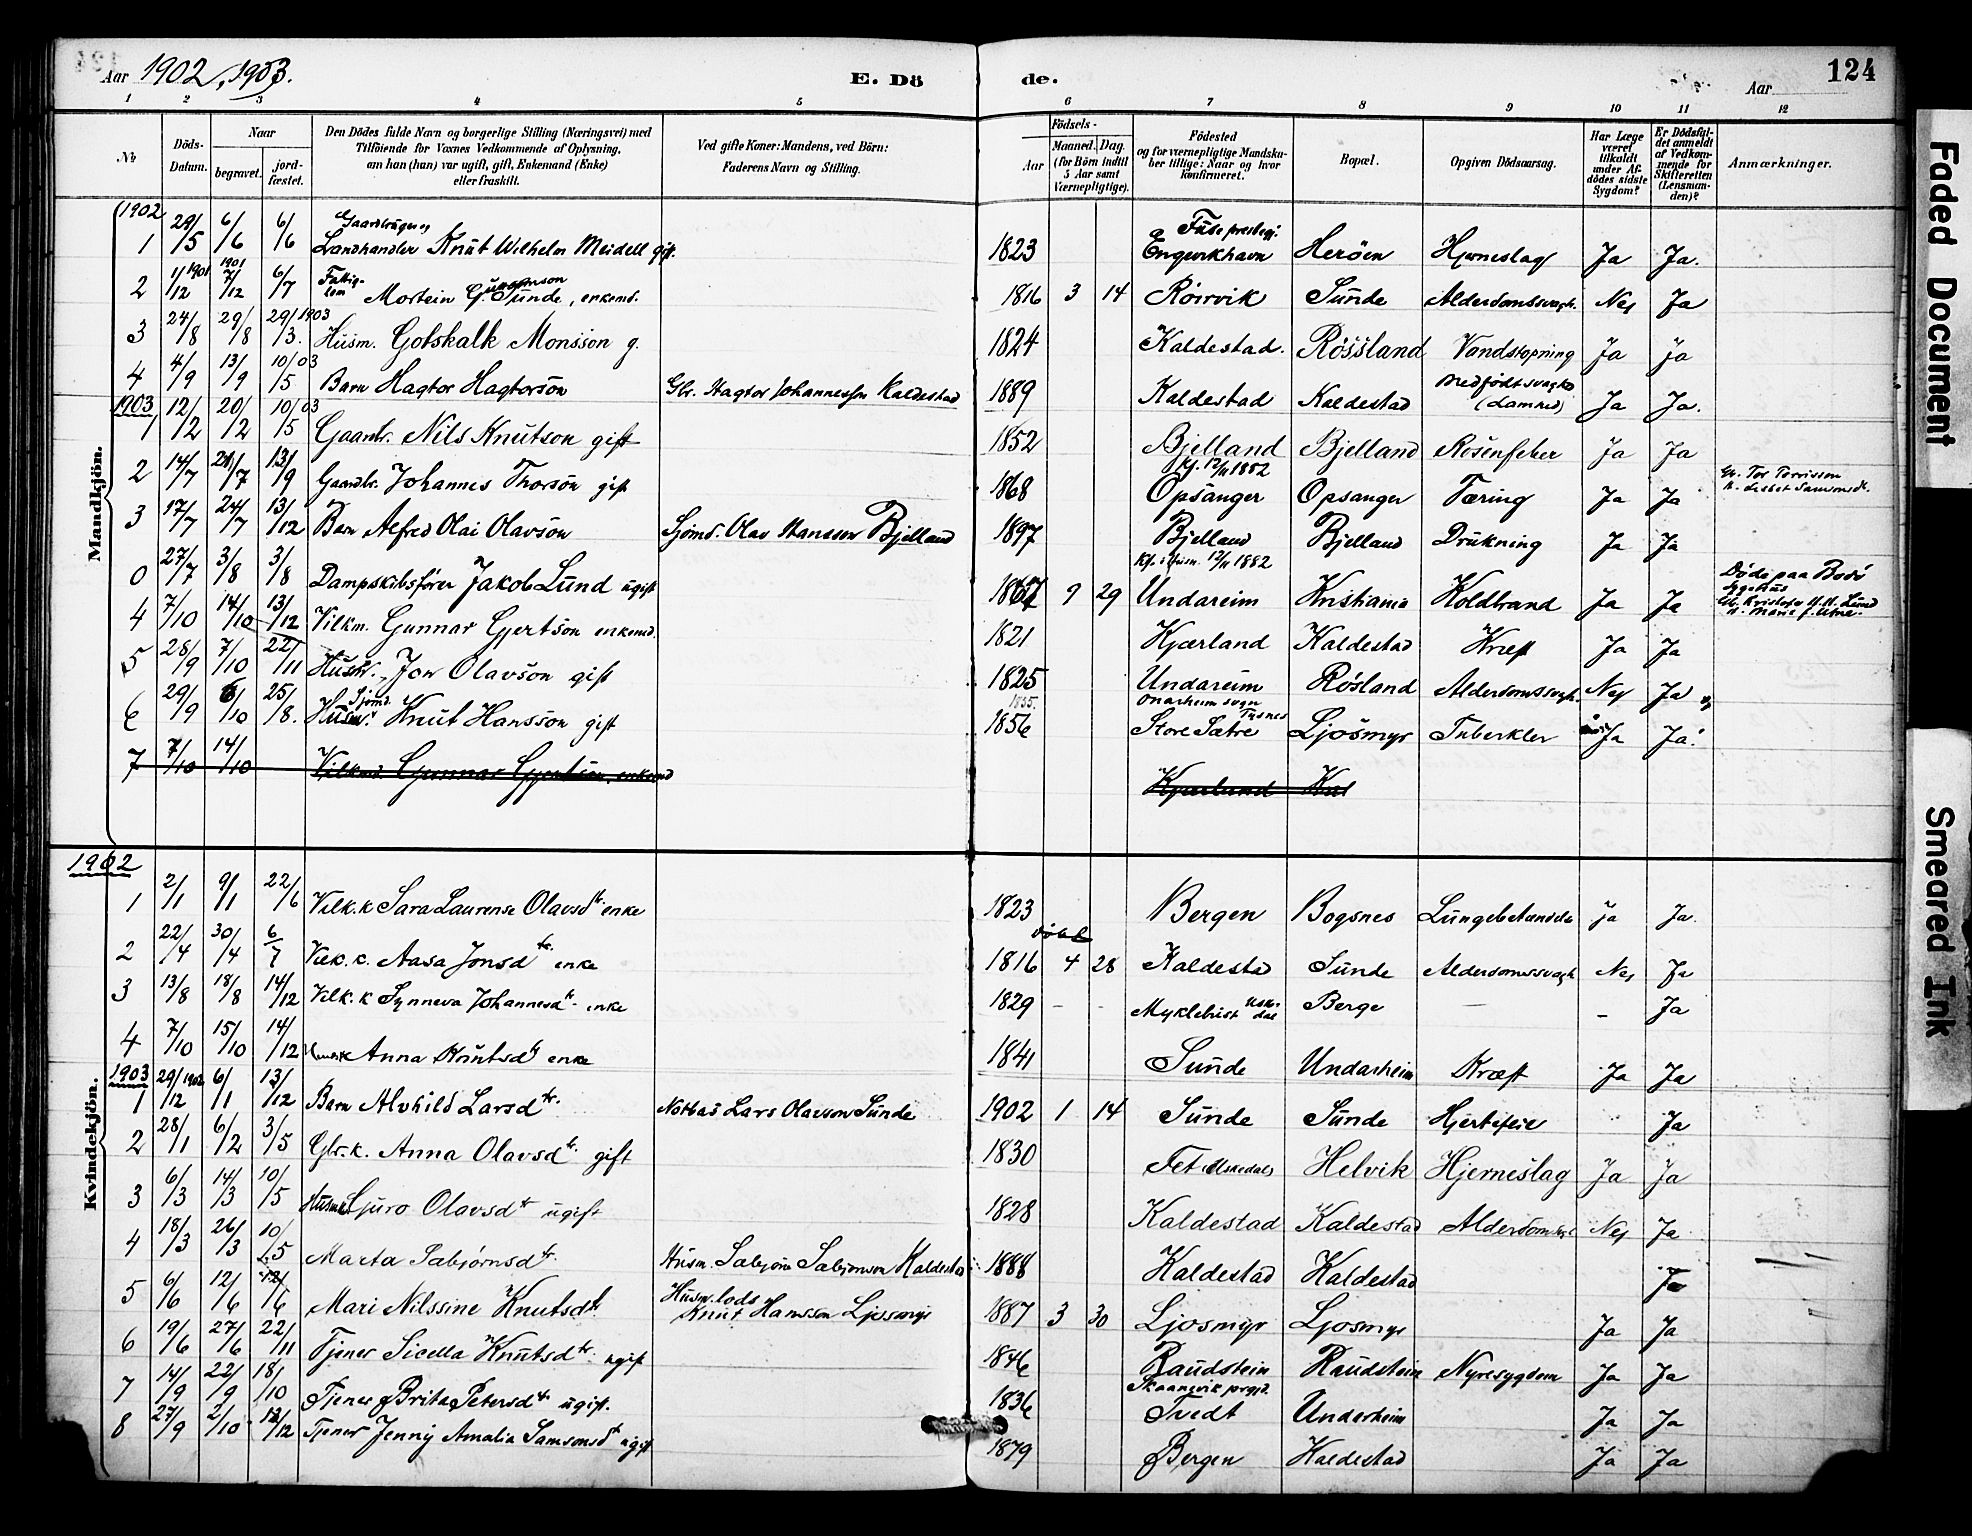 Aar 1902, 1903. E. Dö de. Aar 124
1 2 3 4 5 6 7 8 9 10 11 12
No Döds-Datum. Naar begravet. jord-fæstet. Den Dödes fulde Navn og borgerlige Stilling (Næringsvei) med Tilföiende for Voxnes Vedkommende af Oplysning, om han (hun) var ugift, gift, Enkemand (Enke) eller fraskilt. Ved gifte Koner: Mandens, ved Börn: Faderens Navn og Stilling. Födsels- Aar Maaned. Dag. (for Börn indtil 5 Aar samt Værnepligtige). Födested og for værnepligtige Mandskaber tillige: Naar og hvor konfirmeret. Bopæl. Opgiven Dödsaarsag. Har Læge været tilkaldt under Afdödes sidste Sygdom? Er Dödsfaldet anmeldt af Vedkommende for Skifteretten (Lensmanden)? Anmærkninger.
Mandkjön.
1902
1 29/5 6/6 6/6 Gaardbruger og Landhandler Knut Wilhelm Meidell gift. 1823 Fuse prestegj. Engevikhavn Heröen Hjerneslag Ja Ja.
2 1/12 1901 7/12 1901 6/7 Fattiglem Mortein G. Sunde, enkemd. 1816 3 14 Röirvik Sunde Alderdomssvagh. Nej Ja
3 24/8 29/8 29/3. 1903 Husm. Gotskalk Monsson g. 1824 Kaldestad. Rössland Vandstopning Ja Ja
4 4/9 13/9 10/5 03 Barn Hagtor Hagtorson Gbr. Hagtor Johannesson Kaldestad 1889 Kaldestad Kaldestad Medfödt svaghed (Lamhed) Ja Ja.
1903
1 12/2 20/2 10/5 03 Gaardbr. Nils Knutson gift 1852 Bjelland Bjelland Rosenfeber Ja Ja
2 14/7 21/7 13/9 Gaardbr. Johannes Thorson gift 1868 kf. 12/11 1882 Opsanger Opsanger Tæring Ja Ja Gbr. Tor Torrisson
3 17/7 24/7 13/12 Barn Alfred Olai Olavson Sjömd. Olav Hansson Bjelland 1897 Bjelland Bjelland Drukning Ja Ja
0 27/7 3/8 3/8 Dampskibsförer Jakob Lund ugift 1867 9 29 12/11 1882 Undareim Kristiania Koldbrand Ja Ja Döde paa Bodö Sygehus
4 7/10 14/10 13/12 Vilkm. Gunnar Gjertson enkemd. 1821 Kjærland Kaldestad Kræft Ja Ja
5 28/9 7/10 22/11 Husm. Jon Olavson gift 1825 Undareim Rösland Alderdomssvagh. Nej Ja
6 29/9 6/10 25/8. Sjömd. Husm. Knut Hansson gift 1856 1855. Onarheim sogn Tysnes Store Sætre Ljosmyr Tuberkler Ja Ja.
7 7/10 14/10 Vilkmd Gunnar Gjertson, enkemd Kjærland Kal
Kvindekjön.
1902
1 2/1 9/1 22/6 Vilk.k Sara Laurense Olavsdtr. enke 1823 Bergen Bogsnes Lungebetændelse Ja Ja.
2 22/4 30/4 6/7 Vilk.k. Aasa Jonsdtr. enke 1816 4 28 Kaldestad Sunde Alderdomssvagh Nej Ja
3 13/8 18/8 14/12 Vilk.k Synneva Johannesdtr. enke 1829 - - Myklebust Uskedal Berge - - Ja
4 7/10 15/10 14/12 Anna Knutsdtr enke 1841 Sunde Undarheim Kræft Ja Ja
1903
1 29/12 1902 6/1 13/12 Barn Alvhild Larsdtr. Notbas Lars Olavson Sunde 1902 1 14 Sunde Sunde Hjertefeil Ja
2 28/1 6/2 3/5 Gbr.k. Anna Olavsdtr. gift 1830 Fet Uskedal Helvik Hjerneslag Ja Ja
3 6/3 14/3 10/5 Sjuro Olavsdtr ugift 1828 Kaldestad Kaldestad Alderdomssv. Nej Ja
4 18/3 26/3 10/5 Marta Sabjörnsdtr. Husm. Sabjörn Sabjörnson Kaldestad 1888 Kaldestad Kaldestad Ja
5 6/6 12/6 12/6 Mari Nilssine Knutsdtr. Husm. lods Knut Hansson Ljosmyr 1887 3 30 Ljosmyr Ljosmyr Ja Ja
6 19/6 27/6 22/11 Tjener Sicella Knutsdtr. ugift 1846 Raudstein Raudstein Nyresygdom Ja Ja
7 14/9 22/9 18/10 Tjener Brita Petersdtr ugift. 1836 Skaanevik prgjd. Tvedt Undarheim Ja Ja
8 27/9 2/10 12/12 Tjener Jenny Amalia Samsonsdtr ugift 1879 Bergen Kaldestad Ja Ja
Faded Document
Smeared Ink